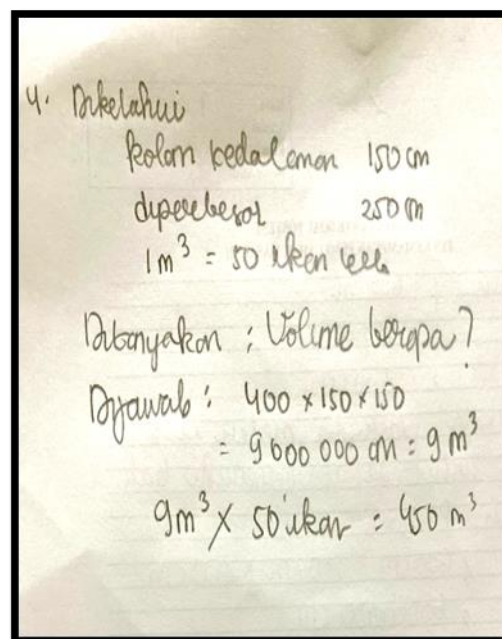 4. Diketahui
kolam kedalaman 150 cm
diperbesar 250 cm
1 m³ = 50 ikan lele
Ditanyakan : Volume berapa?
Dijawab : 400 x 150 x 150
= 9000 000 cm = 9 m³
9 m³ x 50 ikan = 450 m³